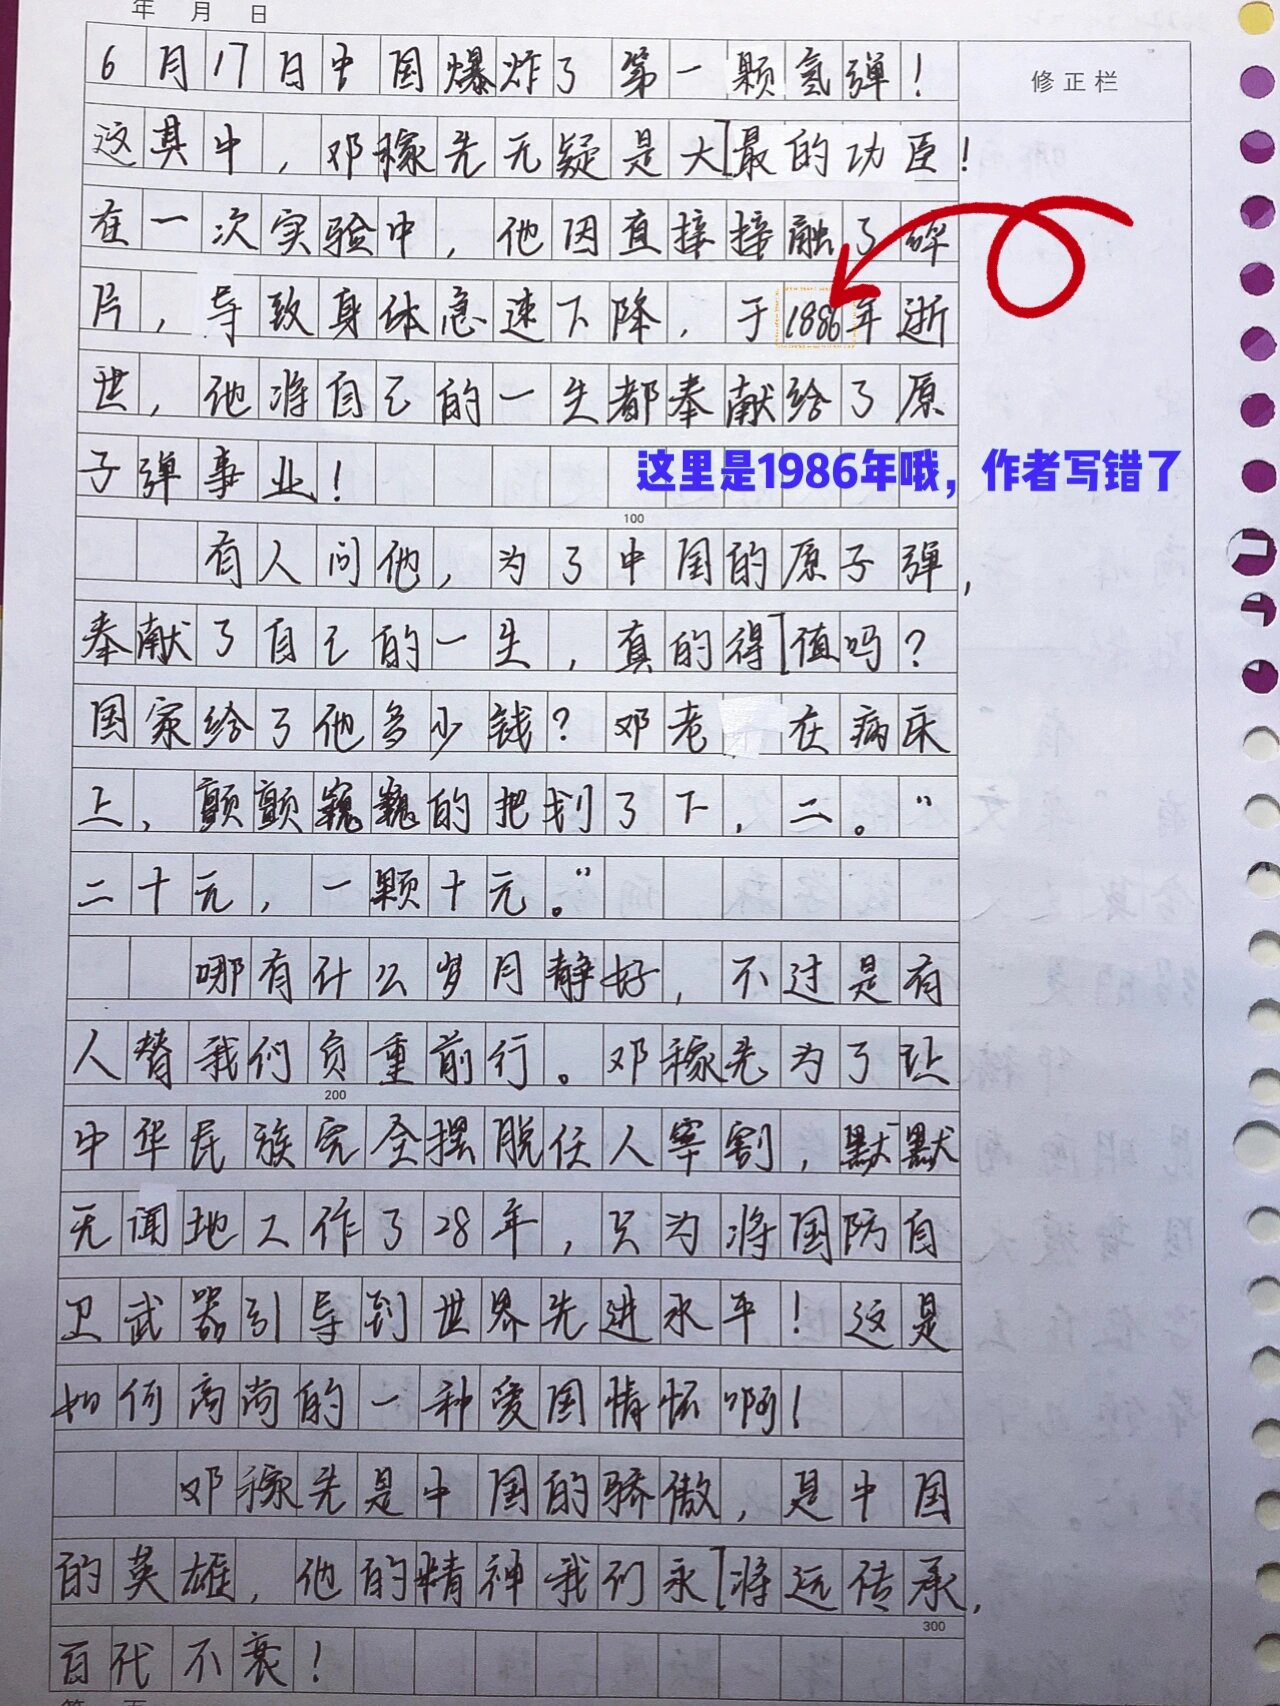 年 月 日
6月17日中国爆炸了第一颗氢弹！
修正栏
这其中，邓稼先无疑是大]最的功臣！
在一次实验中，他因直接接融了碎
片，导致身体急速下降，于1886年逝
世，他将自己的一生都奉献给了原
子弹事业！
这里是1986年哦，作者写错了
100
有人问他，为了中国的原子弹，
奉献了自己的一生，真的得]值吗？
国家给了他多少钱？邓老在病床
上，颤颤巍巍的把划了下，二。“
二十元，一颗十元。”
哪有什么岁月静好，不过是有
人替我们负重前行。邓稼先为了让
200
中华民族完全摆脱任人宰割，默默
无闻地工作了28年，只为将国防自
卫武器引导到世界先进水平！这是
如何高尚的一种爱国情怀啊！
邓稼先是中国的骄傲，是中国
的英雄，他的精神我们永]将远传承，
300
百代不衰！